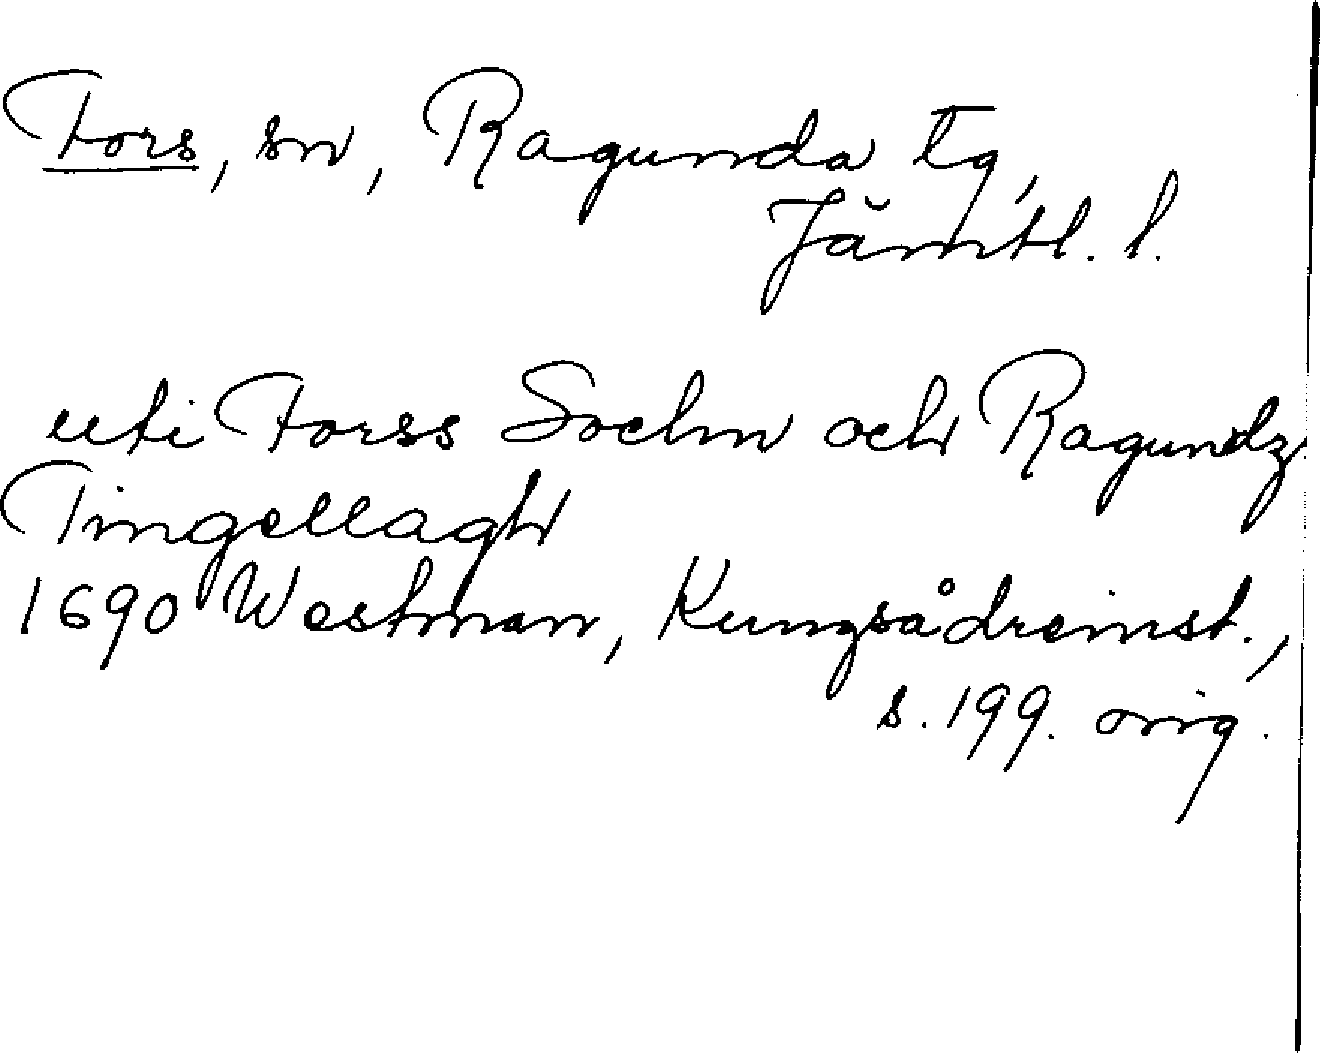 Fors, sn, Ragunda tg,
Jämtl. l.
uti Forss Sochn och Ragundz
Tingellagh
1690 Westman, Kungsådreinst.,
s. 199. orig.